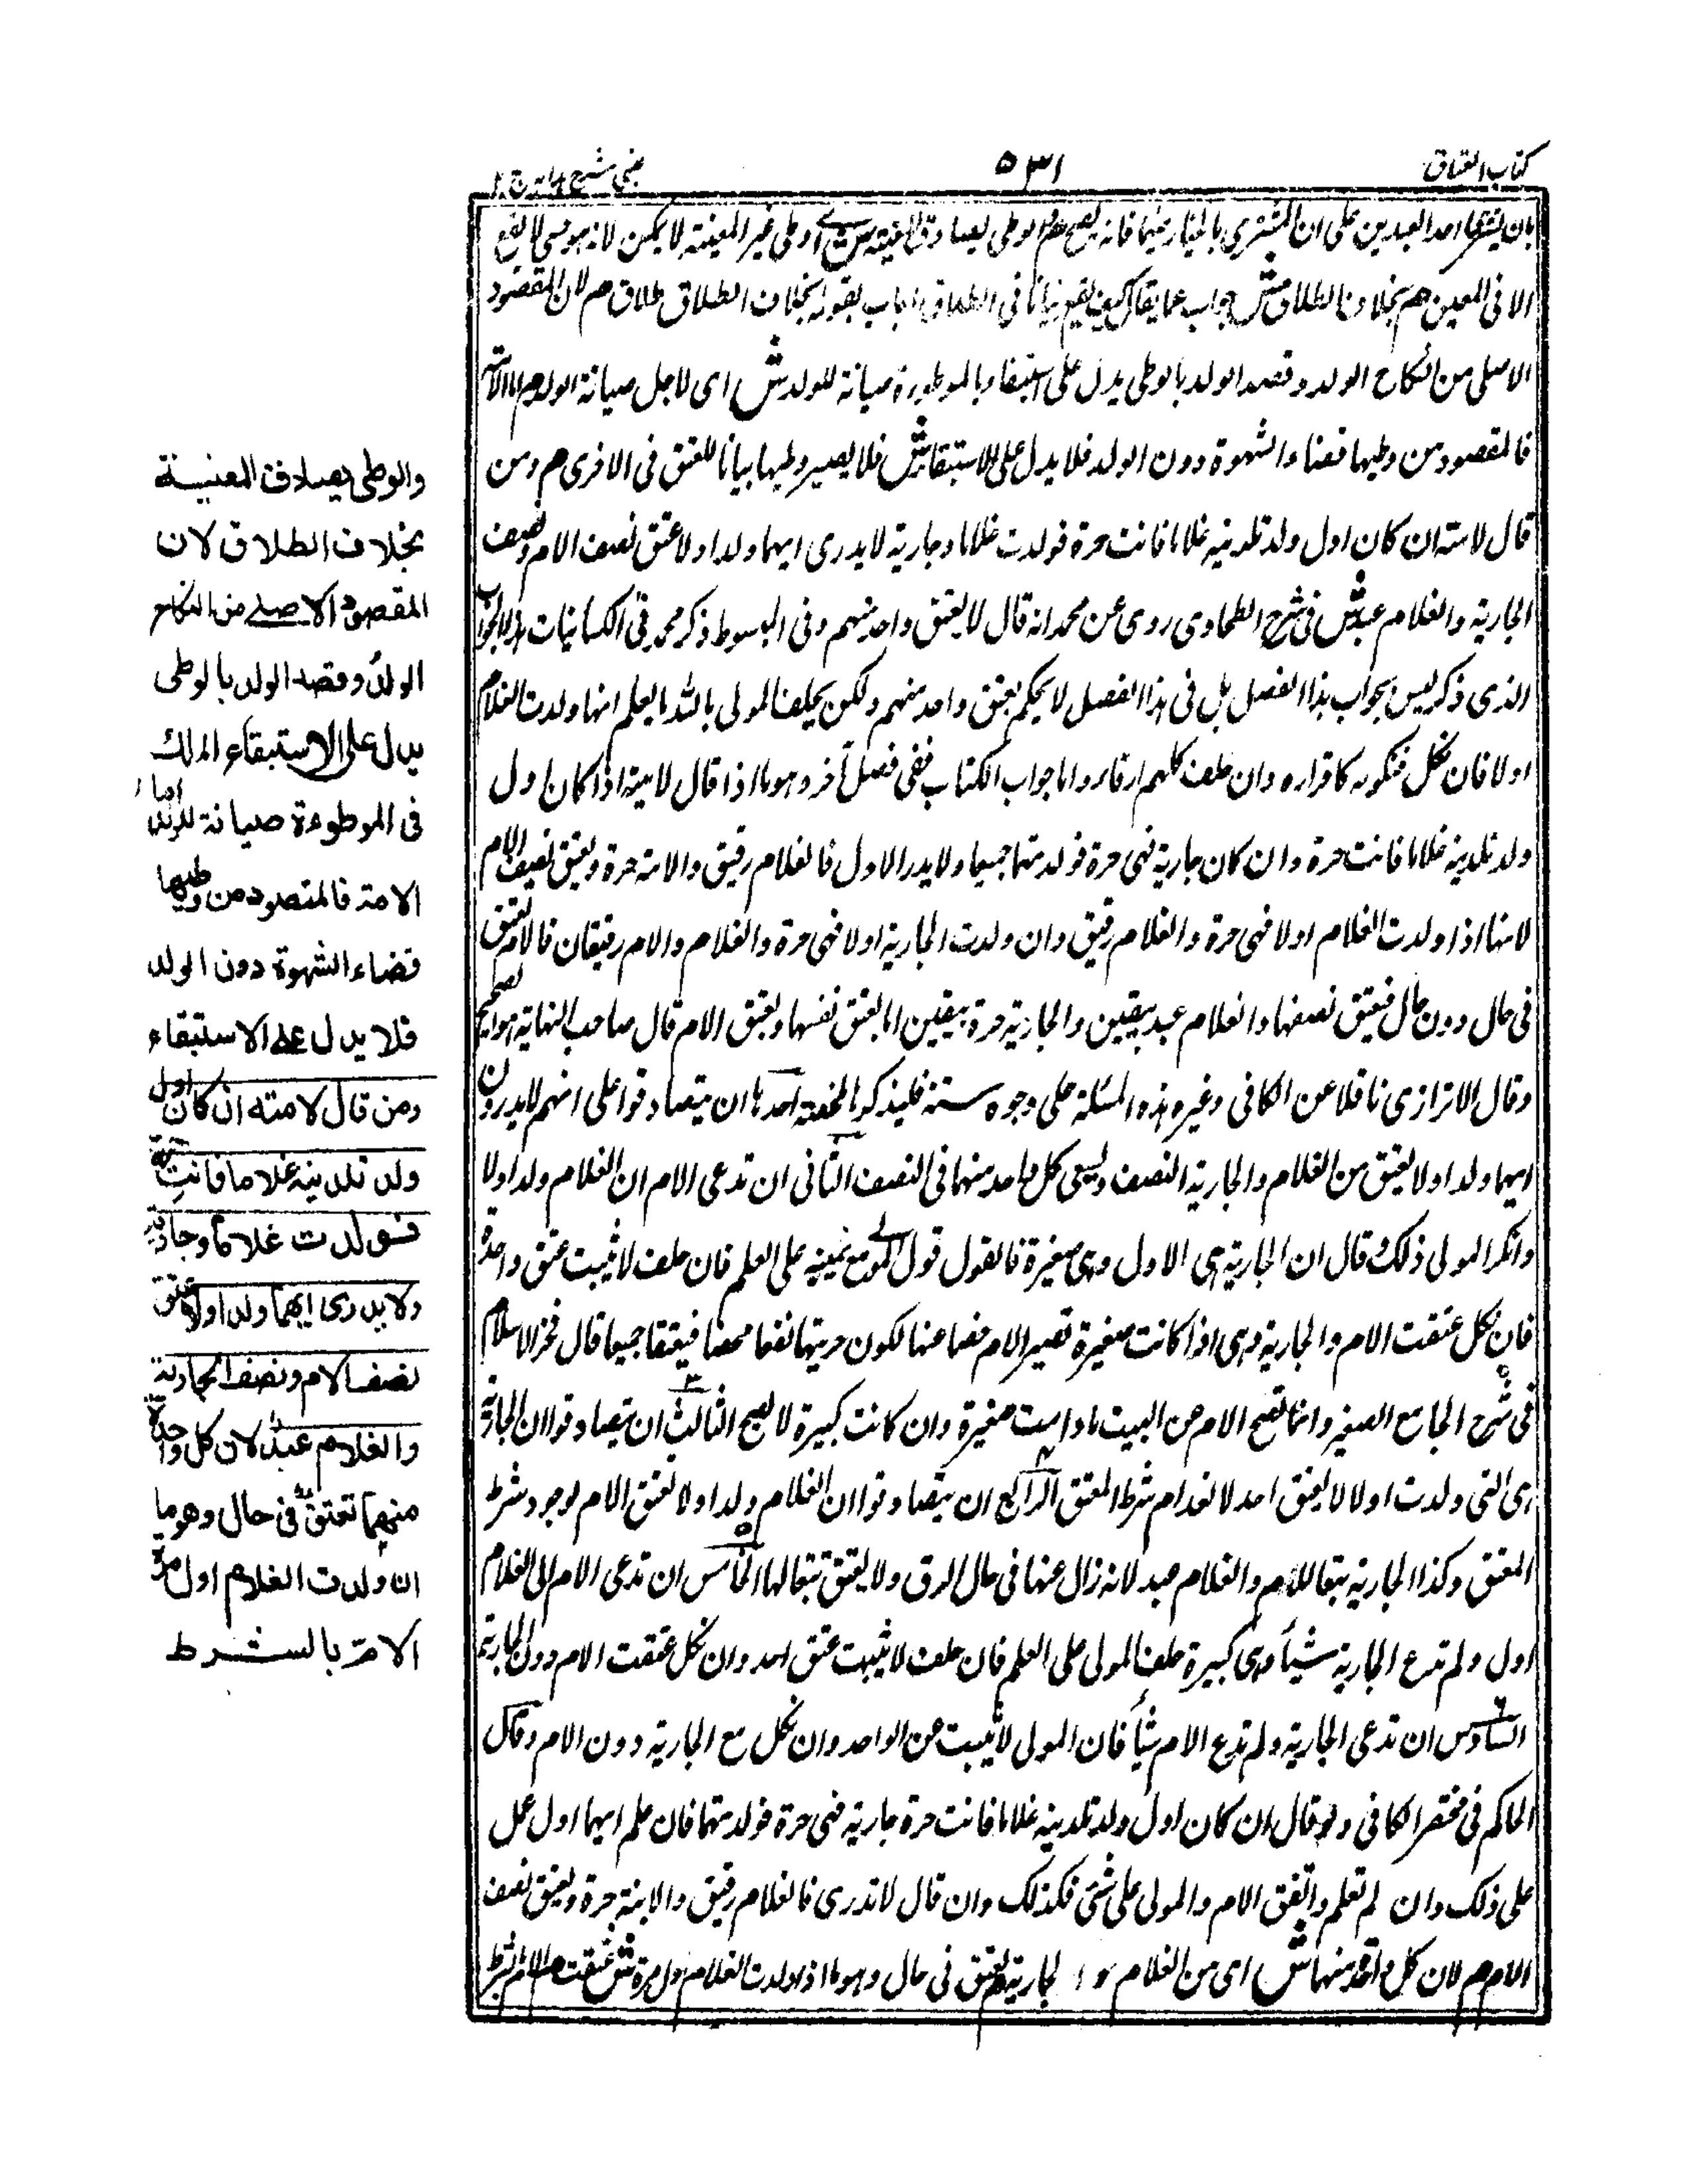 كتاب العتاق
٥٣١
عينى شرح هدايه ج ٢
بان يشترى احد العبدين على ان المشترى بالخيار فيهما فانه يصح هم والوطى يصادف المعينة ش اى وطى غير المعينة لا يمكن لانه هو حسى لا يقع
الا فى المعين هم بخلاف الطلاق ش جواب عما يقال كيف يقع بيانا فى الطلاق اجاب بقوله بخلاف الطلاق طلاق هم لان المقصود
الاصلى من النكاح الولد وقصد الولد بالوطى يدل على استبقاء بالموطوءة صيانة للولد ش اى لاجل صيانة الولد هم اما الامة
فالمقصود من وطيها قضاء الشهوة دون الولد فلا يدل على الاستبقاء ش فلا يصير وطيها بيانا للعتق فى الاخرى هم ومن
قال لامته ان كان اول ولد تلدينه غلاما فانت حرة فولدت غلاما وجارية لا يدرى ايهما ولد اولا عتق نصف الام ونصف
الجارية والغلام عبد ش فى شرح الطحاوى روى عن محمد انه قال لا يعتق واحد منهم وفى المبسوط ذكر محمد فى الكسانيات هذا الجواب
الذى ذكر ليس بجواب هذا الفصل بل فى هذا الفصل لا يحكم بعتق واحد منهم ولكن يحلف المولى بالله ما يعلم انها ولدت الغلام
اولا فان نكل فنكوله كاقراره وان حلف كلهم ارقاء واما جواب الكتاب ففى فصل آخر وهو ما اذا قال لامته اذا كان اول
ولد تلدينه غلاما فانت حرة وان كان جارية فهى حرة فولدتهما جميعا ولا يدر الاول فالغلام رقيق والامة حرة ويعتق نصف الام
لانها اذا ولدت الغلام اولا فهى حرة والغلام رقيق وان ولدت الجارية اولا فهى حرة والغلام والام رقيقان فالام تعتق
فى حال دون حال فيعتق نصفها والغلام عبد بيقين والجارية حرة بيقين اما بعتق نفسها وبعتق الام قال صاحب النهاية هو الصحيح
وقال الاترازى ناقلا عن الكافى وغيره هذه المسئلة على وجوه ستة فليذكرها لمحفة احدها ان يتصادقوا على انهم لا يدرون
ايهما ولد اولا يعتق من الغلام والجارية النصف ويسعى كل واحد منهما فى النصف الثانى ان تدعى الام ان الغلام ولد اولا
وانكر المولى ذلك وقال ان الجارية هى الاول وهى صغيرة فالقول قول المولى مع يمينه على العلم فان حلف لا يثبت عتق واحد
فان نكل عتقت الام والجارية وهى اذا كانت صغيرة تصير الام خصما عنها لكون حريتها نفعا محضا فيعتقا جميعا قال فخر الاسلام
فى شرح الجامع الصغير وانما تصح الام عن البيت ما دامت صغيرة وان كانت كبيرة لا يصح الثالث ان يتصادقوا ان الجارية
هى التى ولدت اولا لا يعتق احد لانعدام شرط المعتق الرابع ان يتصادقوا ان الغلام ولد اولا تعتق الام لوجود شرط
المعتق وكذا الجارية تبعا للام والغلام عبد لانه زال عنها فى حال الرق ولا يعتق تبعا لها الخامس ان تدعى الام الى الغلام
اول ولم تدع الجارية شيئا وهى كبيرة حلف المولى على العلم فان حلف لا يثبت عتق احد وان نكل عتقت الام دون الجارية
السادس ان تدعى الجارية ولم تدع الام شيأ فان المولى لا يثبت عن الواحد وان نكل مع الجارية دون الام وقال
الحاكم فى مختصر الكافى ولو قال ان كان اول ولد تلدينه غلاما فانت حرة جارية فهى حرة فولدتهما فان علم ايهما اول عمل
على ذلك وان لم تعلم واتفق الام والمولى على شئ فكذلك وان قال لا تدرى فالغلام رقيق والابنة حرة ويعتق نصف
الام هم لان كل واحد منهما ش اى من الغلام و الجارية هم تعتق فى حال وهو ما اذا ولدت الغلام اول مرة ش عتقت هم الام بالشرط
والوطى يصادف المعينة
بخلاف الطلاق لان
المقصود الاصلے من النكاح
الولد وقصد الولد بالوطى
يدل على الاستبقاء الملك
فى الموطوءة صيانة للولد اما
الامة فالمقصود من وطيها
قضاء الشهوة دون الولد
فلا يدل علے الاستبقاء
ومن قال لامته ان كان اول
ولد تلدينه غلاما فانت حرة
فولدت غلاما وجارية
ولا يدرى ايهما ولد اولا عتق
نصف الام ونصف الجارية
والغلام عبد لان كل واحدة
منهما تعتق فى حال وهو ما
اذا ولدت الغلام اول مرة
الام بالشرط